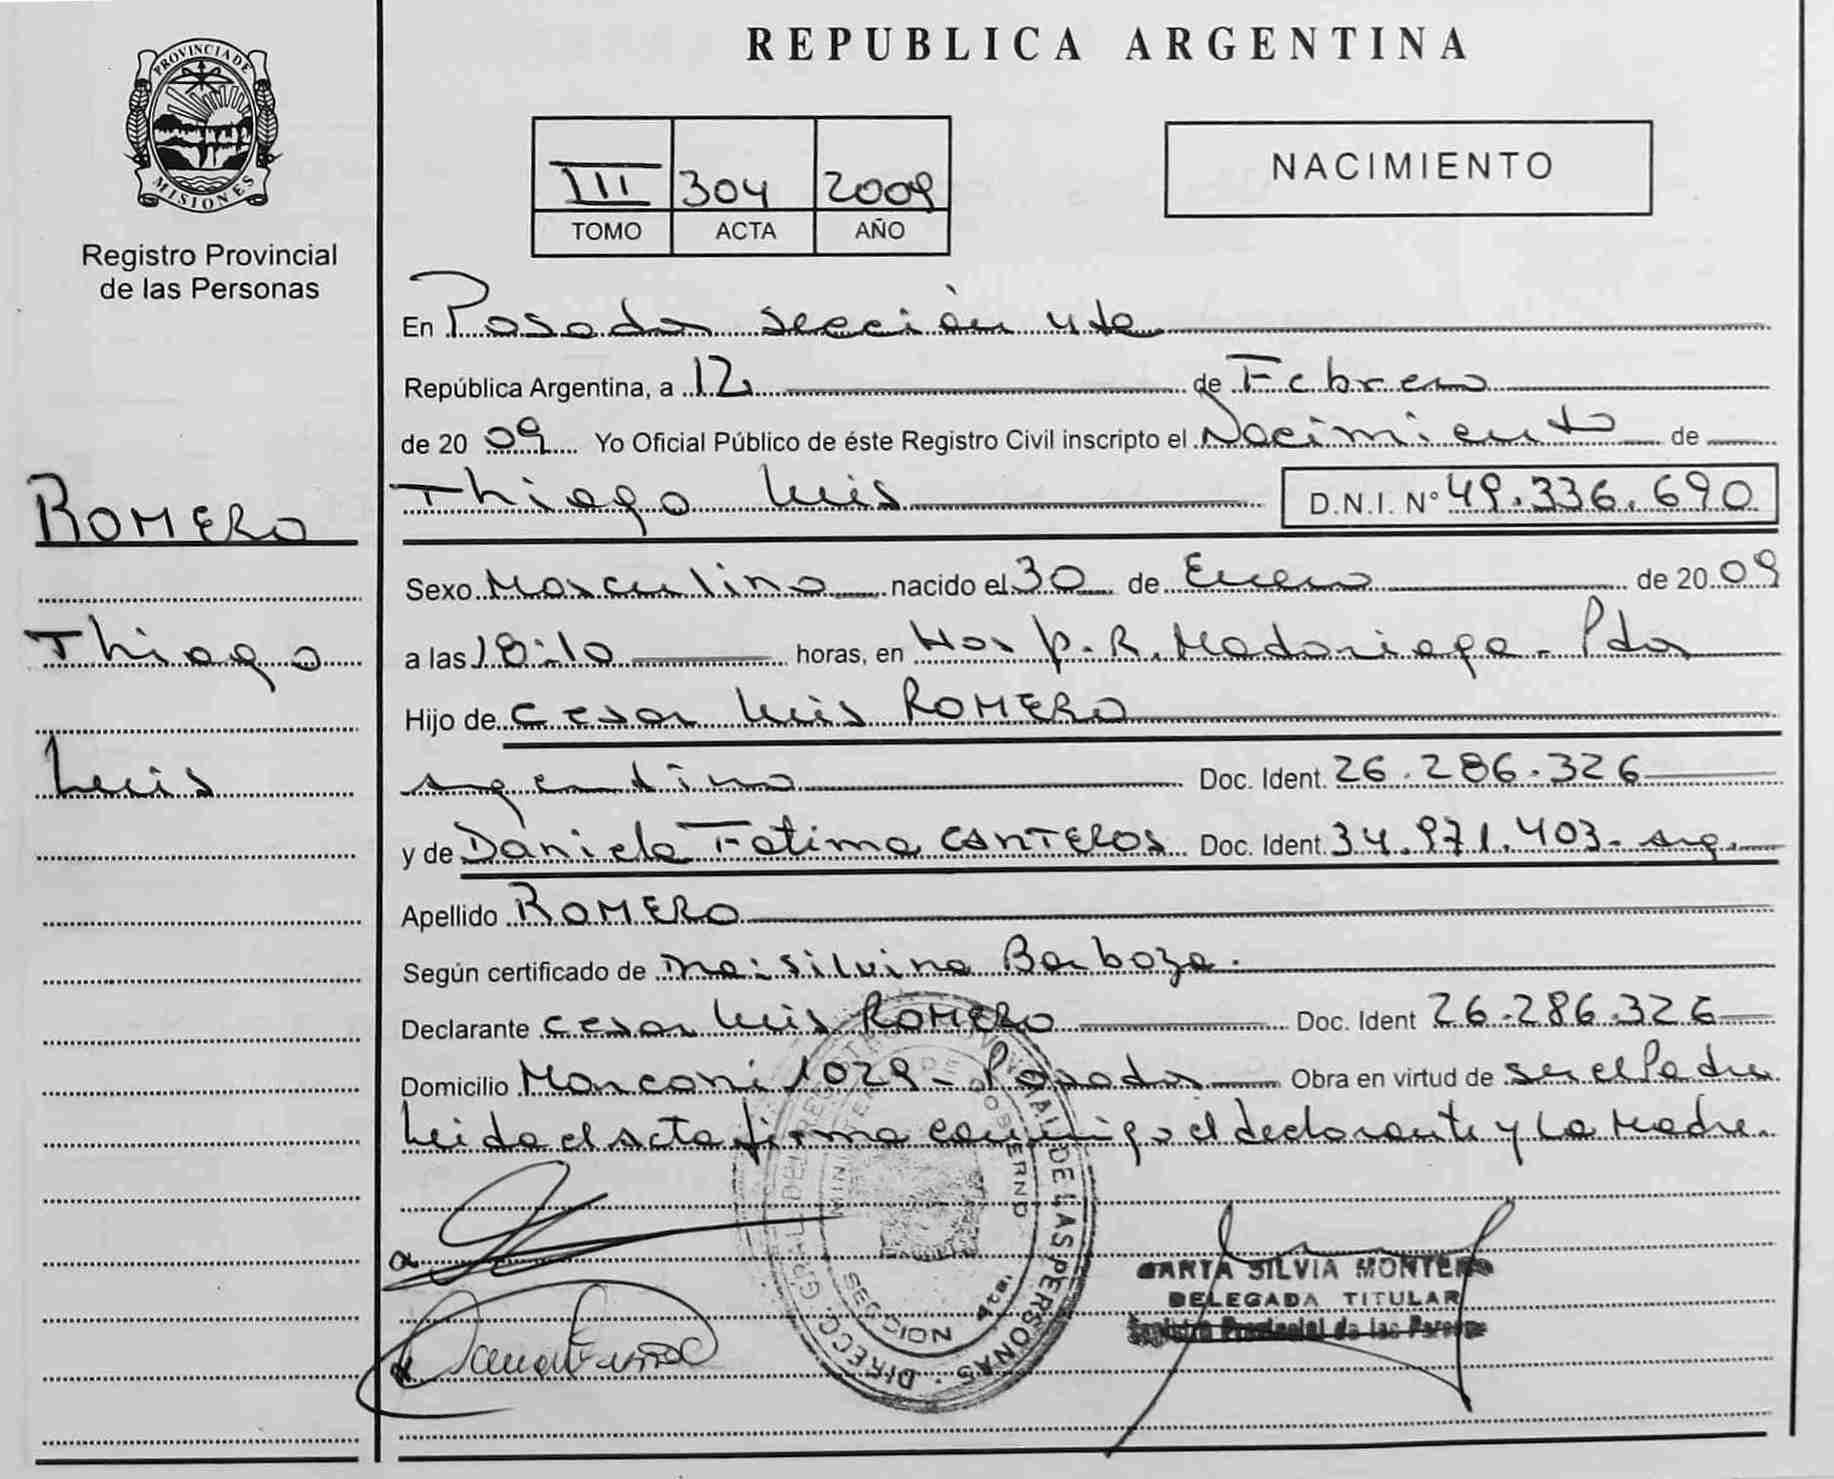 PROVINCIA DE
MISIONES
Registro Provincial
de las Personas
ROMERO
Thiago
Luis
REPUBLICA ARGENTINA
III 304 2009
TOMO ACTA AÑO
NACIMIENTO
En Posadas sección 4ta
República Argentina, a 12 de Febrero
de 2009 Yo Oficial Público de éste Registro Civil inscripto el Nacimiento de
Thiago Luis D.N.I. Nº 49.336.690
Sexo Masculino nacido el 30 de Enero de 2009
a las 18:10 horas, en Hosp. R. Madariaga - Pdas
Hijo de Cesar Luis ROMERO
argentino Doc. Ident. 26.286.326
y de Daniela Fatima CANTEROS Doc. Ident. 34.971.403 - arg.
Apellido ROMERO
Según certificado de Dra: Silvina Barboza.
Declarante Cesar Luis ROMERO Doc. Ident 26.286.326
Domicilio Marconi 1029 - Posadas Obra en virtud de ser el Padre
Leida el acta firma conmigo el declarante y la Madre.
DIRECC. GRAL. DEL REGISTRO PROVINCIAL DE LAS PERSONAS
SECCION 4ta.
SILVIA MONTERO
DELEGADA TITULAR
Registro Provincial de las Personas